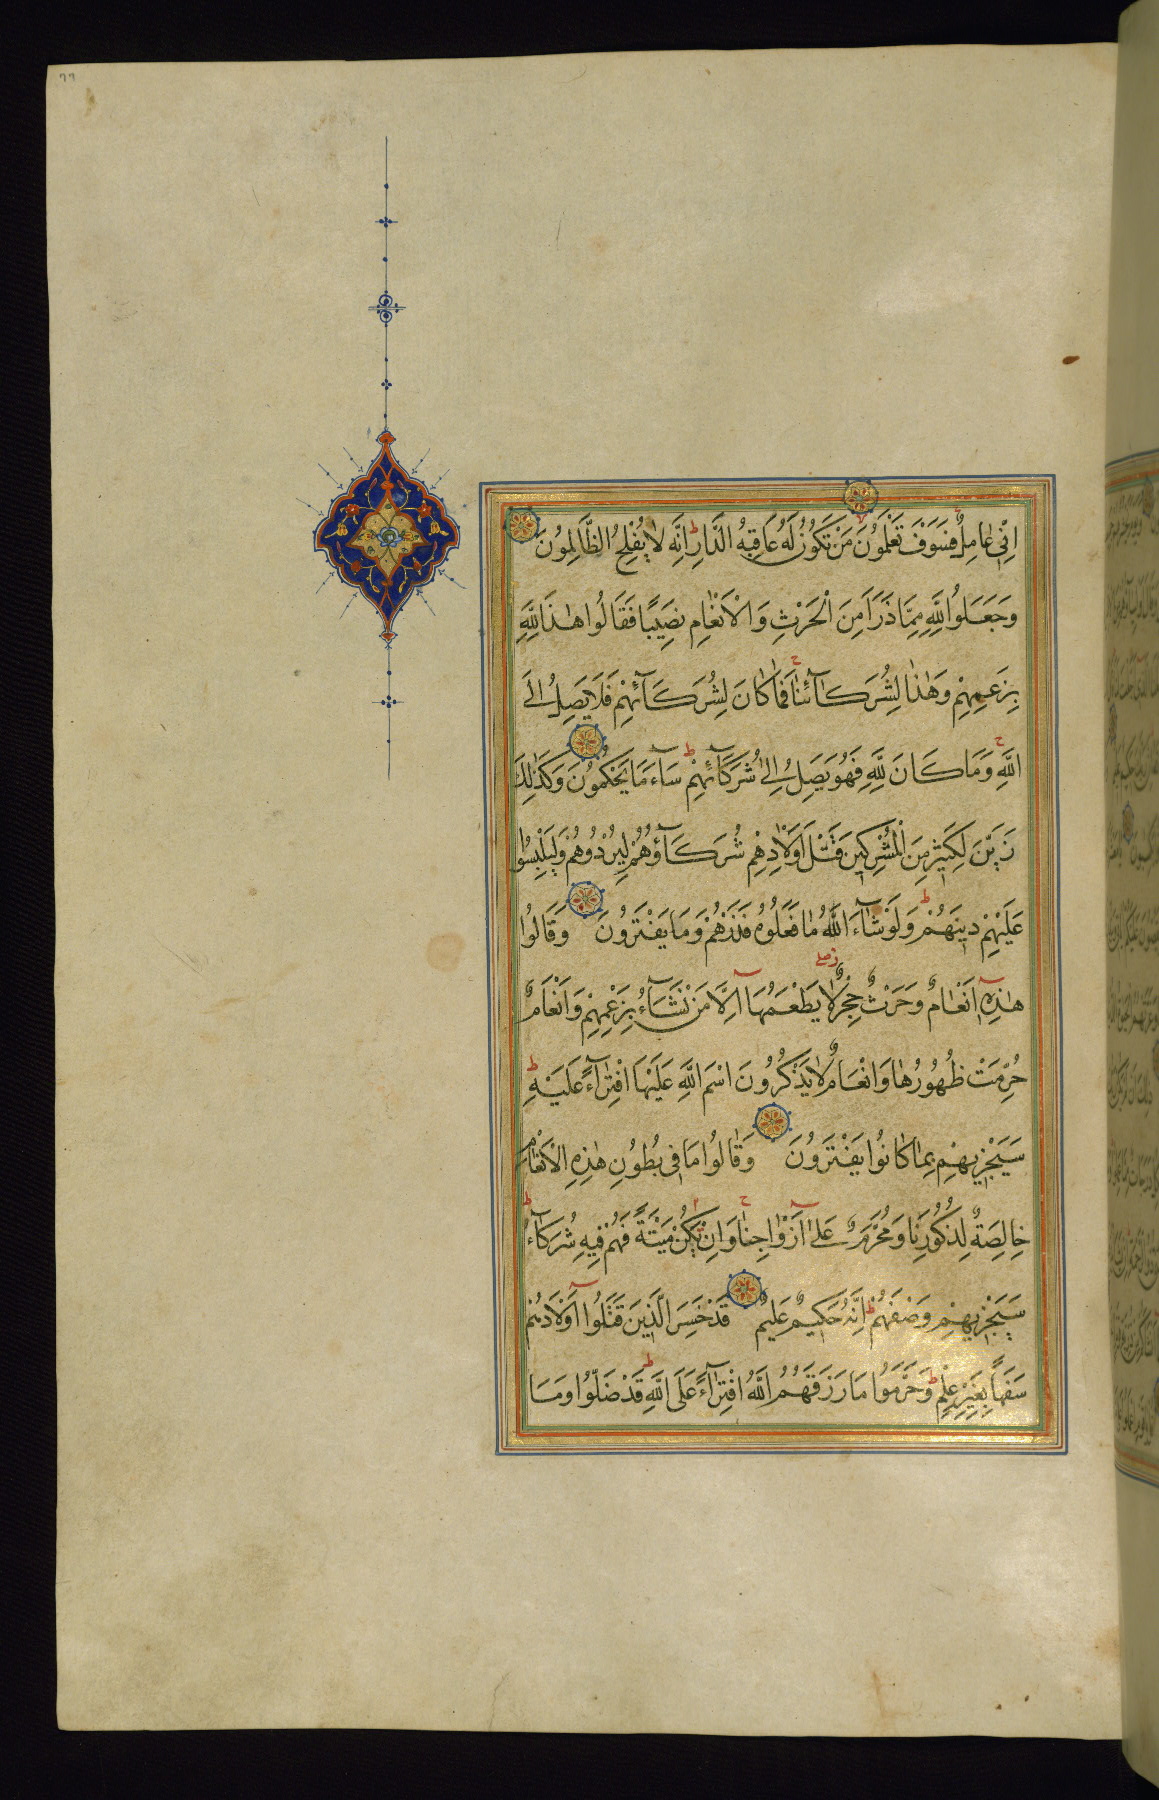 اِنّٖي عَامِلٌ فَسَوْفَ تَعْلَمُونَ مَنْ تَكُونُ لَهُ عَاقِبَةُ الدَّارِ اِنَّهُ لَا يُفْلِحُ الظَّالِمُونَ
وَجَعَلُوا لِلّٰهِ مِمَّا ذَرَاَ مِنَ الْحَرْثِ وَالْاَنْعَامِ نَصِيبًا فَقَالُوا هٰذَا لِلّٰهِ
بِزَعْمِهِمْ وَهٰذَا لِشُرَكَآئِنَا فَمَا كَانَ لِشُرَكَآئِهِمْ فَلَا يَصِلُ اِلَى
اللّٰهِ وَمَا كَانَ لِلّٰهِ فَهُوَ يَصِلُ اِلٰى شُرَكَآئِهِمْ سَآءَ مَا يَحْكُمُونَ وَكَذٰلِكَ
زَيَّنَ لِكَثِيرٍ مِنَ الْمُشْرِكِينَ قَتْلَ اَوْلَادِهِمْ شُرَكَآؤُهُمْ لِيُرْدُوهُمْ وَلِيَلْبِسُوا
عَلَيْهِمْ دِينَهُمْ وَلَوْ شَآءَ اللّٰهُ مَا فَعَلُوهُ فَذَرْهُمْ وَمَا يَفْتَرُونَ وَقَالُوا
هٰذِهٖ اَنْعَامٌ وَحَرْثٌ حِجْرٌ لَا يَطْعَمُهَا اِلَّا مَنْ نَشَآءُ بِزَعْمِهِمْ وَاَنْعَامٌ
حُرِّمَتْ ظُهُورُهَا وَاَنْعَامٌ لَا يَذْكُرُونَ اسْمَ اللّٰهِ عَلَيْهَا افْتِرَآءً عَلَيْهِ
سَيَجْزِيهِمْ بِمَا كَانُوا يَفْتَرُونَ وَقَالُوا مَا فِي بُطُونِ هٰذِهِ الْاَنْعَامِ
خَالِصَةٌ لِذُكُورِنَا وَمُحَرَّمٌ عَلٰٓى اَزْوَاجِنَا وَاِنْ يَكُنْ مَيْتَةً فَهُمْ فِيهِ شُرَكَآءُ
سَيَجْزِيهِمْ وَصْفَهُمْ اِنَّهُ حَكِيمٌ عَلِيمٌ قَدْ خَسِرَ الَّذِينَ قَتَلُوا اَوْلَادَهُمْ
سَفَهًا بِغَيْرِ عِلْمٍ وَحَرَّمُوا مَا رَزَقَهُمُ اللّٰهُ افْتِرَآءً عَلَى اللّٰهِ قَدْ ضَلُّوا وَمَا